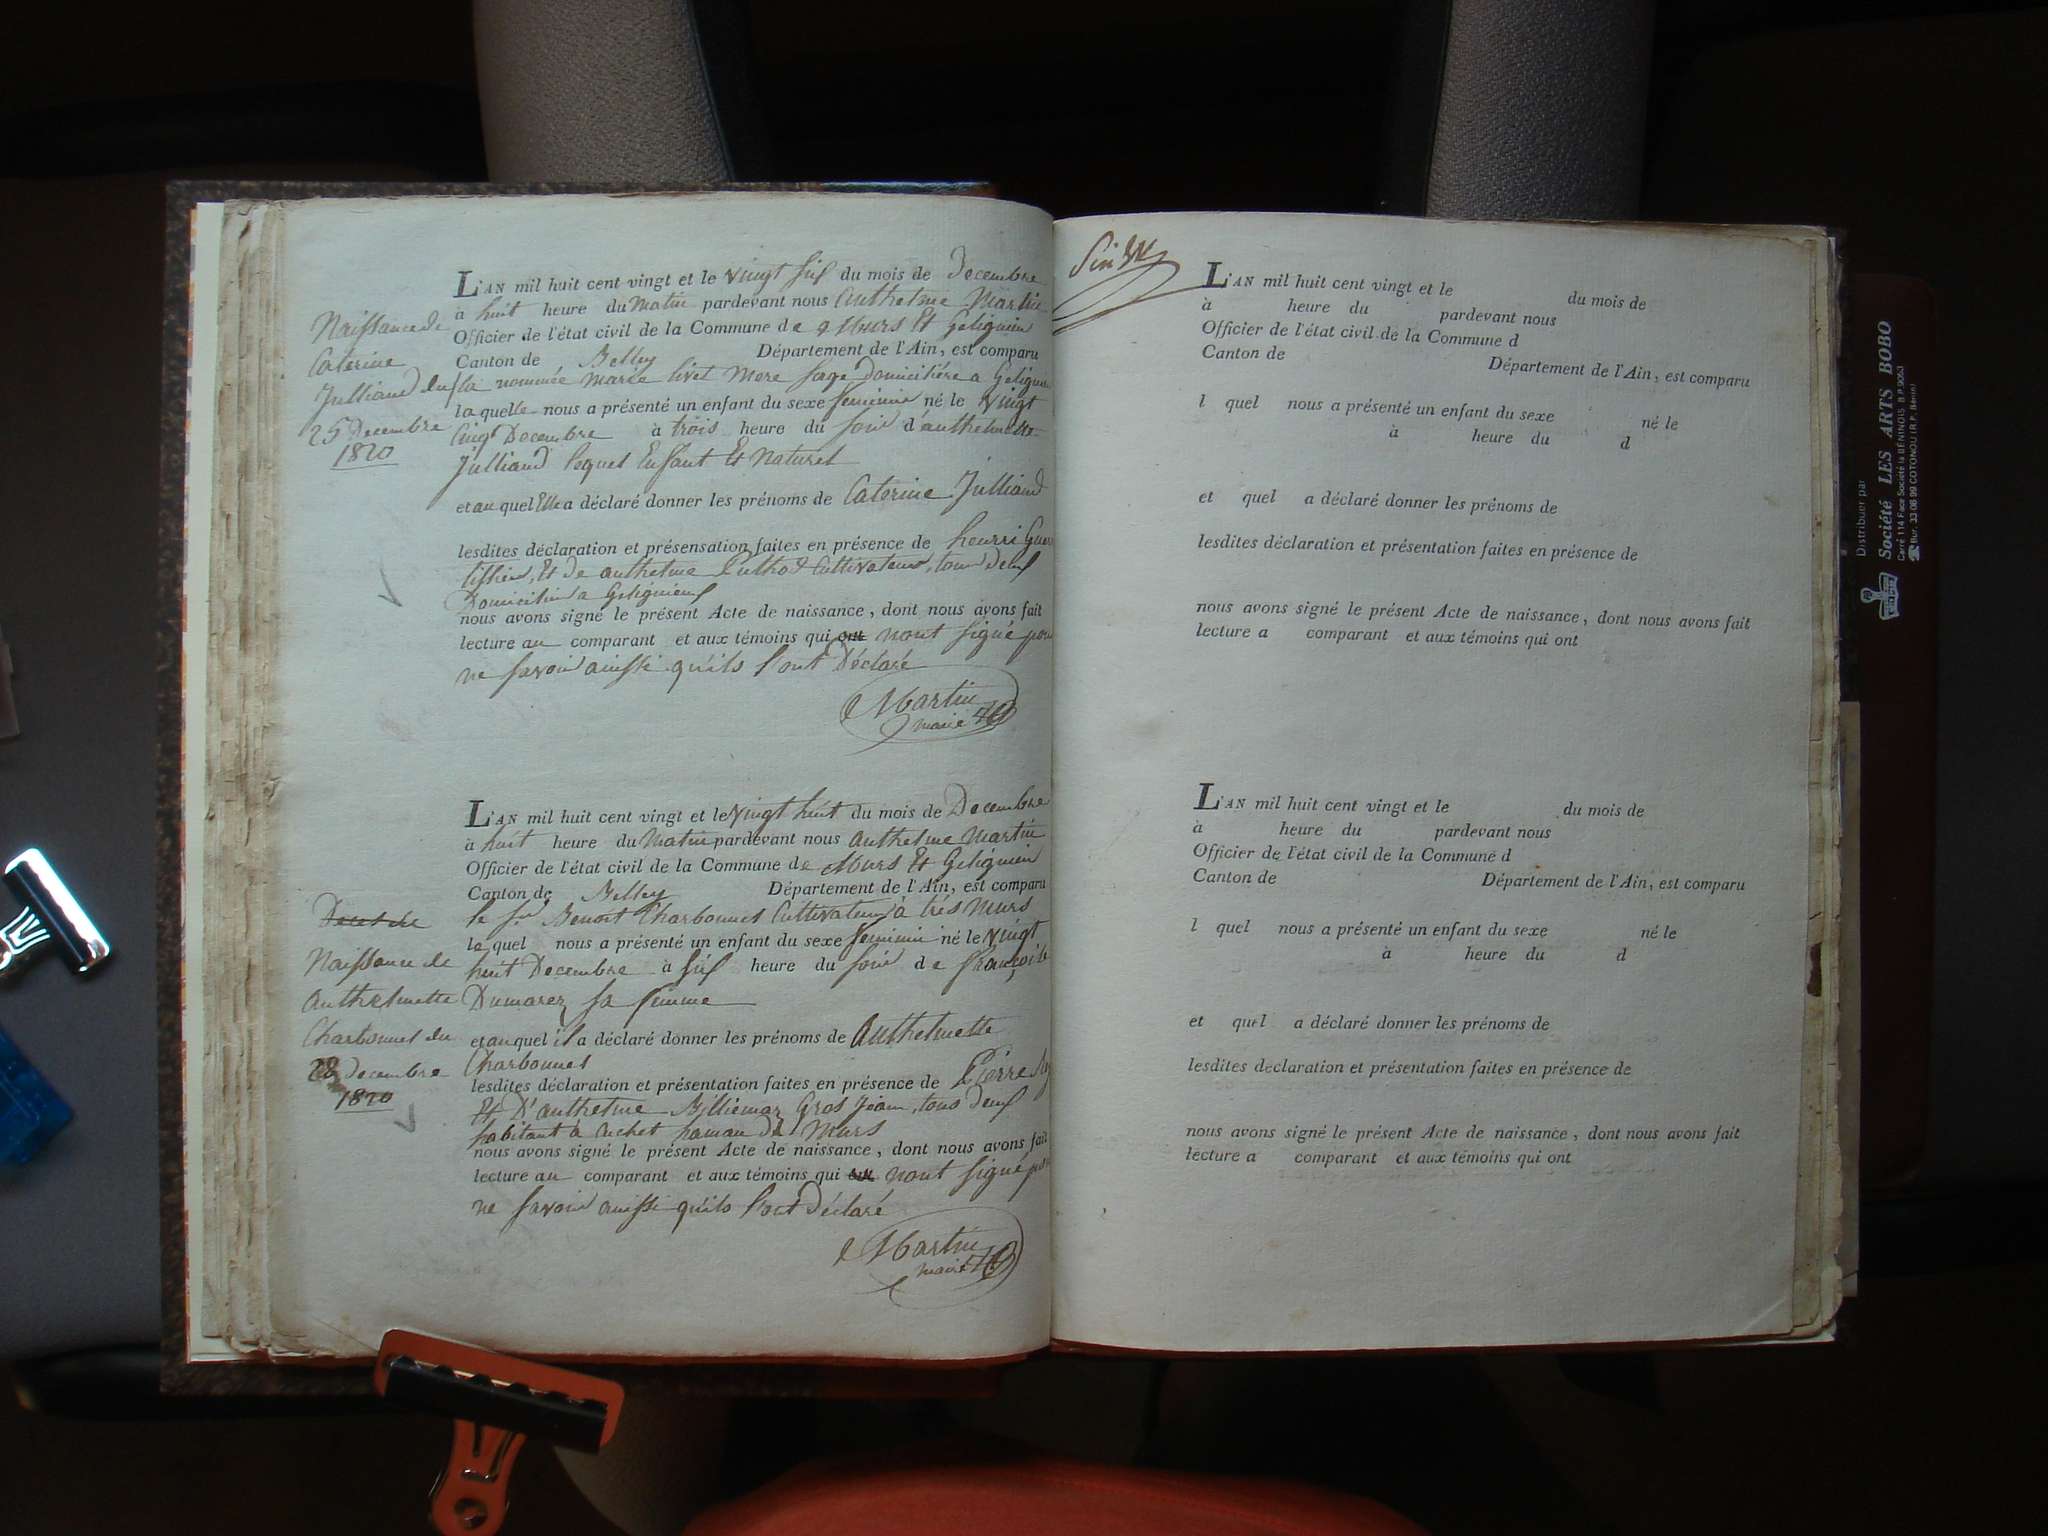 Naissance de
Caterine
Julliand du
25 Decembre
1820
L'AN mil huit cent vingt et le vingt six du mois de Decembre
à huit heure du matin pardevant nous Anthelme Martin
Officier de l'état civil de la Commune de Murs Et Gelignieu
Canton de Belley Département de l'Ain, est comparu
la nommée marie livet Mere sage Domiciliére a Geligni
la quelle nous a présenté un enfant du sexe feminin né le vingt
Cinqt Decembre à trois heure du soir d'anthelmette
Julliand lequel Enfant Et Naturel
et au quel Elle a déclaré donner les prénoms de Caterine Julliand
lesdites déclaration et présensation faites en présence de henri
Et de anthelme Cultivateurs, tous deux
Domicilié a Gelignieux
nous avons signé le présent Acte de naissance, dont nous avons fait
lecture au comparant et aux témoins qui ont nont signé pour
ne savoir ainssi qu'ils l'ont Déclaré
Martin
maire
Deces de
Naissance de
Anthelmette
Charbonnet du
28 Decembre
1820
L'AN mil huit cent vingt et le vingt huit du mois de Decembre
à huit heure du Matin pardevant nous Anthelme Martin
Officier de l'état civil de la Commune de Murs Et Gelignieu
Canton de Belley Département de l'Ain, est comparu
le sr Benoit Charbonnet Cultivateur à trés Murs
le quel nous a présenté un enfant du sexe feminin né le vingt
huit Decembre à six heure du soir de françoise
Dumarez sa femme
et au quel il a déclaré donner les prénoms de Anthelmette
Charbonnet
lesdites déclaration et présentation faites en présence de Pierre
Et D'anthelme Billiemaz Gros Jean, tous deux
habitant à cuchet hamau de Murs
nous avons signé le présent Acte de naissance, dont nous avons fait
lecture au comparant et aux témoins qui ont nont signé pour
ne savoir ainssi qu'ils l'ont Déclaré
Martin
maire
L'AN mil huit cent vingt et le du mois de
à heure du pardevant nous
Officier de l'état civil de la Commune d
Canton de Département de l'Ain, est comparu
l quel nous a présenté un enfant du sexe né le
à heure du d
et quel a déclaré donner les prénoms de
lesdites déclaration et présentation faites en présence de
nous avons signé le présent Acte de naissance, dont nous avons fait
lecture a comparant et aux témoins qui ont
L'AN mil huit cent vingt et le du mois de
à heure du pardevant nous
Officier de l'état civil de la Commune d
Canton de Département de l'Ain, est comparu
l quel nous a présenté un enfant du sexe né le
à heure du d
et quel a déclaré donner les prénoms de
lesdites déclaration et présentation faites en présence de
nous avons signé le présent Acte de naissance, dont nous avons fait
lecture a comparant et aux témoins qui ont
Distribuer par
Société LES ARTS BOBO
Carré 114 Face Société la BÉNINOIS B.P. 9053
Bur. 33 06 99 COTONOU (R.P. Bénin)